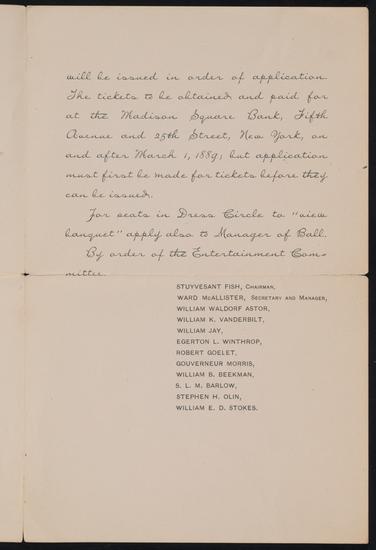 will be issued in order of application.
The tickets to be obtained and paid for
at the Madison Square Bank, Fifth
Avenue and 25th Street, New York, on
and after March 1, 1889; but application
must first be made for tickets before they
can be issued.
For seats in Dress Circle to "view
banquet" apply also to Manager of Ball.
By order of the Entertainment Com-
mittee.
STUYVESANT FISH, CHAIRMAN,
WARD McALLISTER, SECRETARY AND MANAGER,
WILLIAM WALDORF ASTOR,
WILLIAM K. VANDERBILT,
WILLIAM JAY,
EGERTON L. WINTHROP,
ROBERT GOELET,
GOUVERNEUR MORRIS,
WILLIAM B. BEEKMAN,
S. L. M. BARLOW,
STEPHEN H. OLIN,
WILLIAM E. D. STOKES.